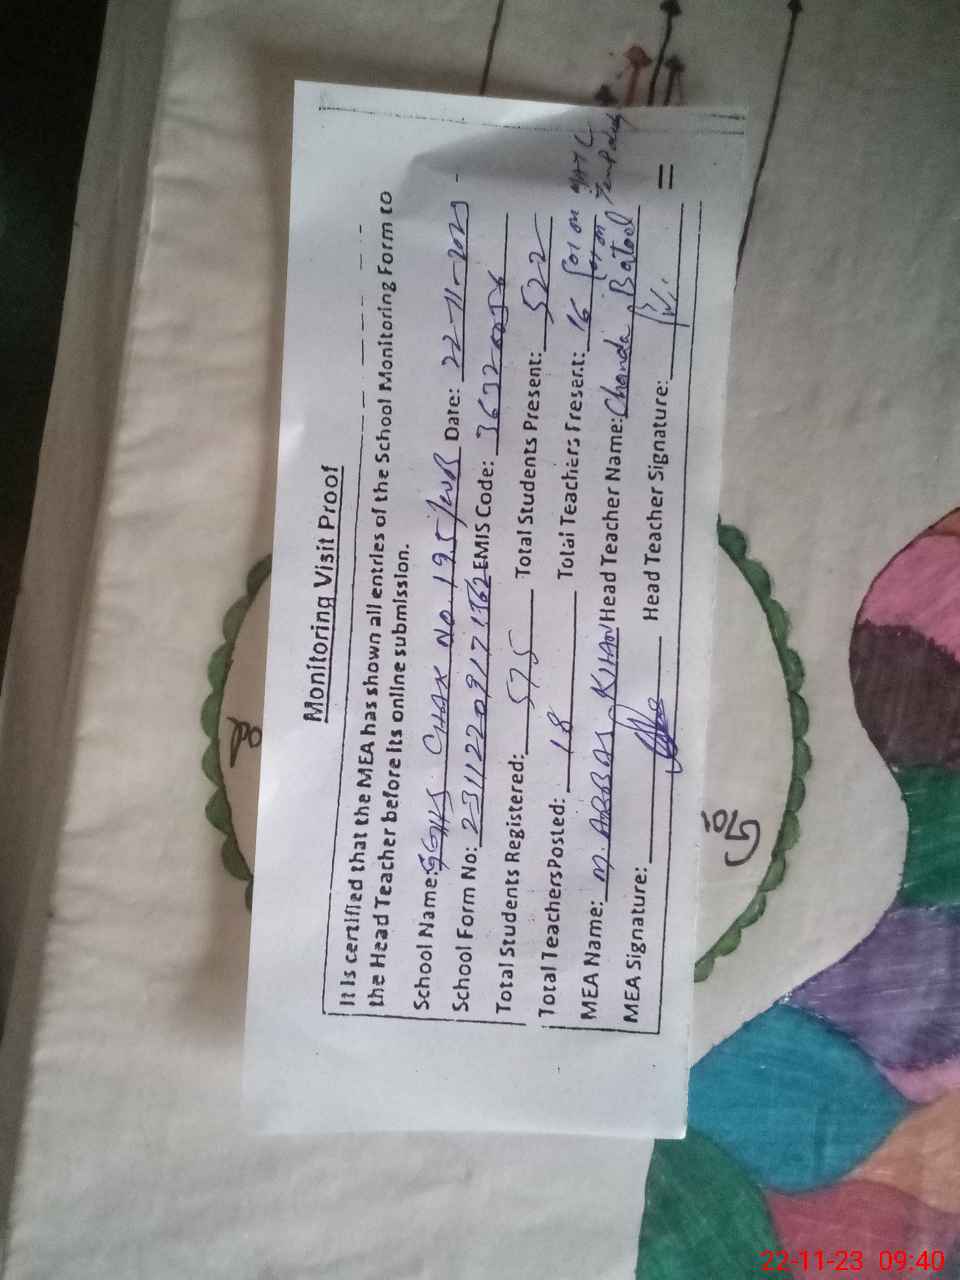 Monitoring Visit Proof
It is certified that the MEA has shown all entries of the School Monitoring Form to
the Head Teacher before its online submission.
School Name: GGHS CHAK NO 195/WB Date: 22-11-2023
School Form No: EMIS Code:
Total Students Registered: 575 Total Students Present: 522
Total Teachers Posted: 18 Total Teachers Present: 16
MEA Name: M. ABBAS KHAN Head Teacher Name: Chanda Batool
MEA Signature: Head Teacher Signature:
22-11-23 09:40